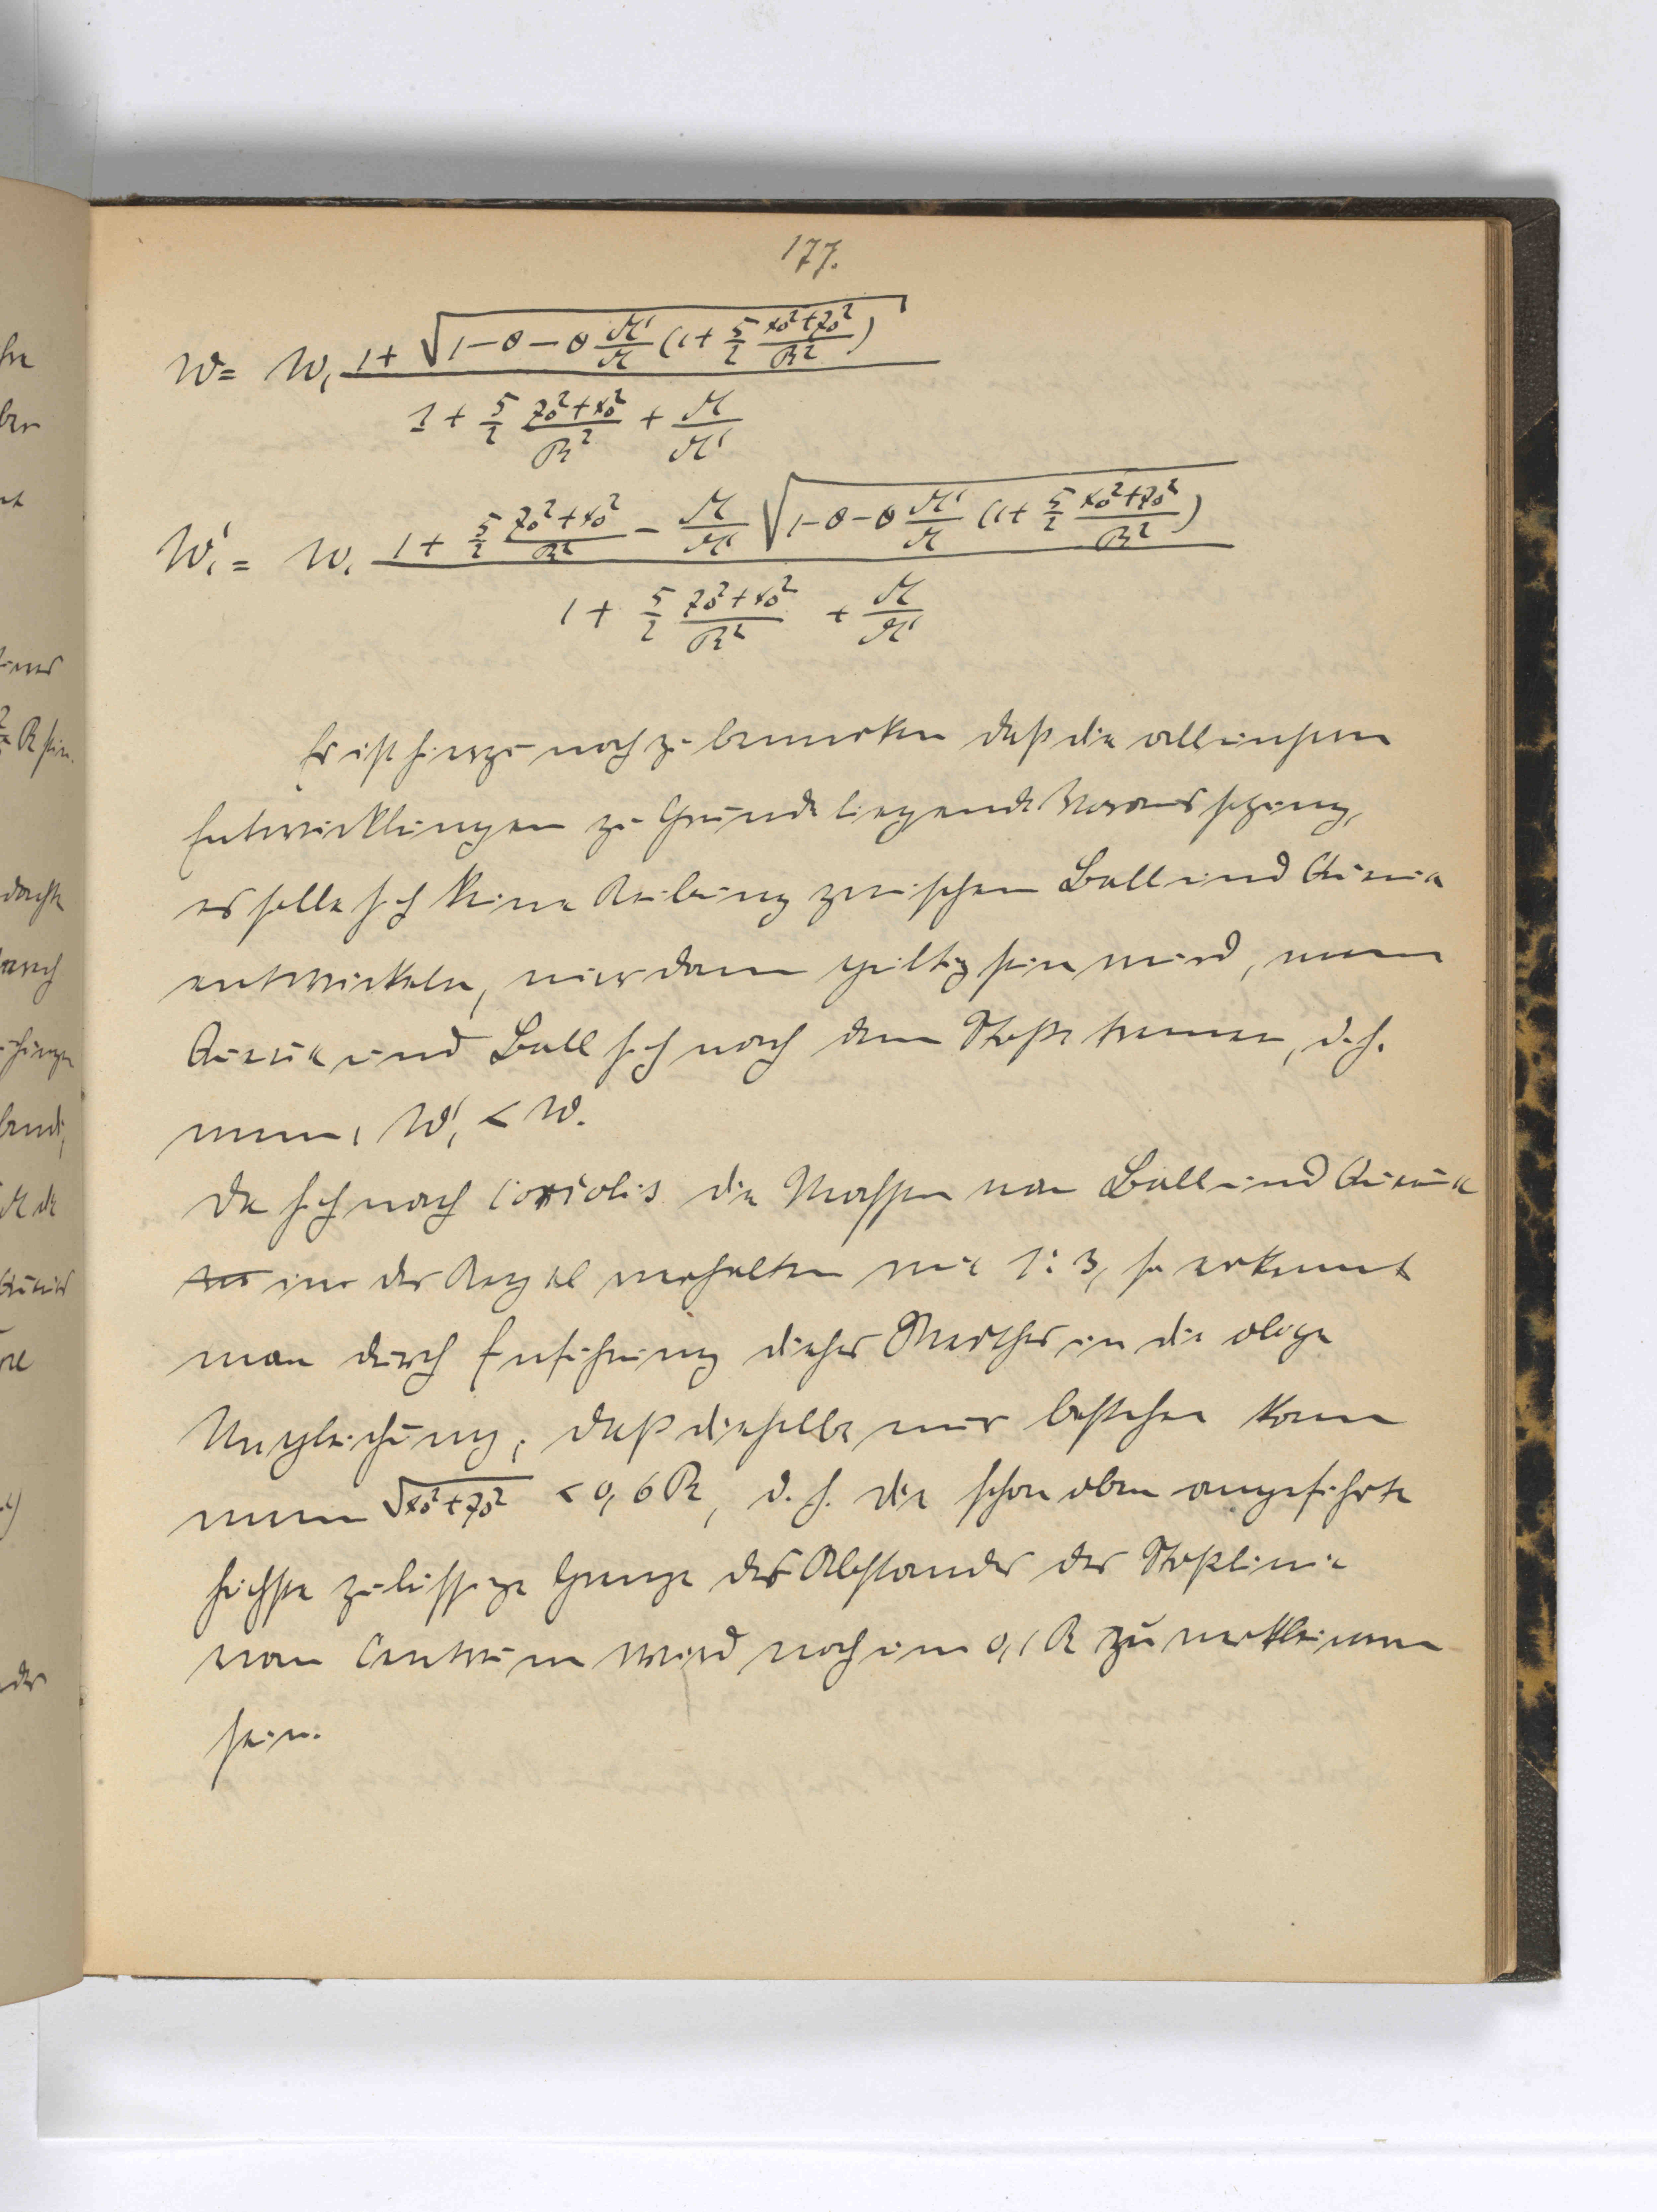 177.
W = W₁ (1 + √(1 − θ − θ M'/M (1 + 5/2 (x₀² + z₀²)/R²))) / (1 + 5/2 (z₀² + x₀²)/R² + M/M')
W₁' = W₁ (1 + 5/2 (z₀² + x₀²)/R² − M/M' √(1 − θ − θ M'/M (1 + 5/2 (x₀² + z₀²)/R²))) / (1 + 5/2 (z₀² + x₀²)/R² + M/M')
Es ist hierzu noch zu bemerken daß die all unsern
Entwicklungen zu Grunde liegende Voraussetzung,
es solle sich keine Reibung zwischen Ball und Queue
entwickeln, nur dann gültig sein wird, wenn
Queue und Ball sich nach dem Stoße trennen, d. h.
wenn, W₁' < W.
Da sich nach Coriolis die Massen von Ball und Queue
in der Regel verhalten wie 1:3, so erkennt
man durch Einführung dieses Werthes in die obige
Ungleichung, daß dieselbe nur bestehen kann
wenn √(x₀² + z₀²) < 0,6 R, d. h. die schon oben angeführte
höchste zulässige Grenze des Abstandes der Stoßlinie
vom Centrum wird noch um 0,1 R zu verkleinern
sein.